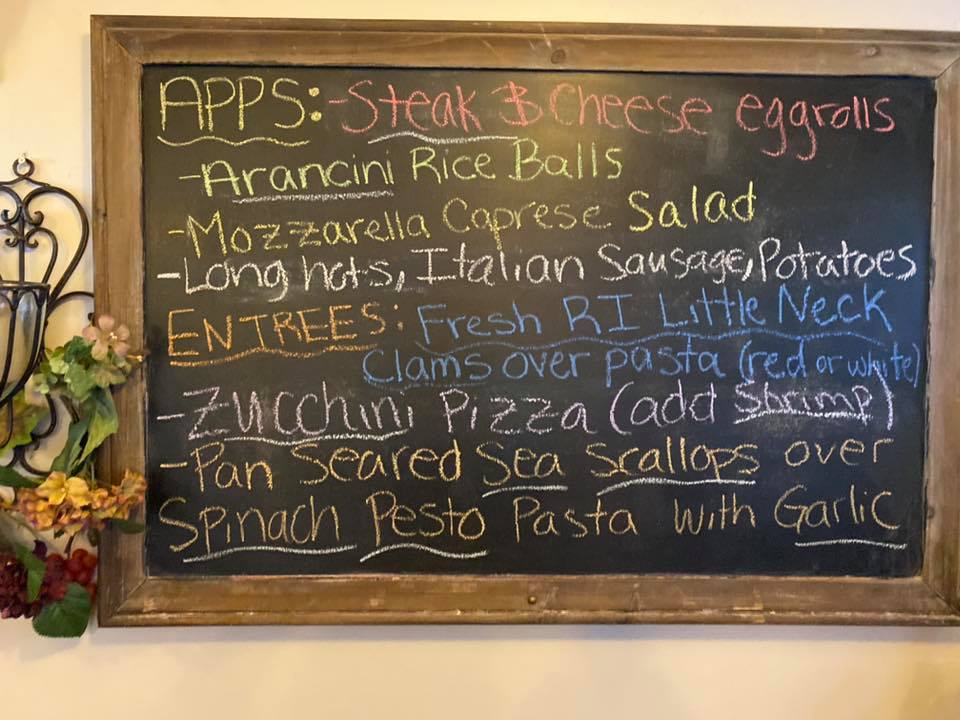 APPS: -Steak & Cheese eggrolls
-Arancini Rice Balls
-Mozzarella Caprese Salad
-Long hots, Italian Sausage, Potatoes
ENTREES: Fresh RI Little Neck
Clams over pasta (red or white)
-Zucchini Pizza (add Shrimp)
-Pan Seared Sea Scallops over
Spinach Pesto Pasta with Garlic